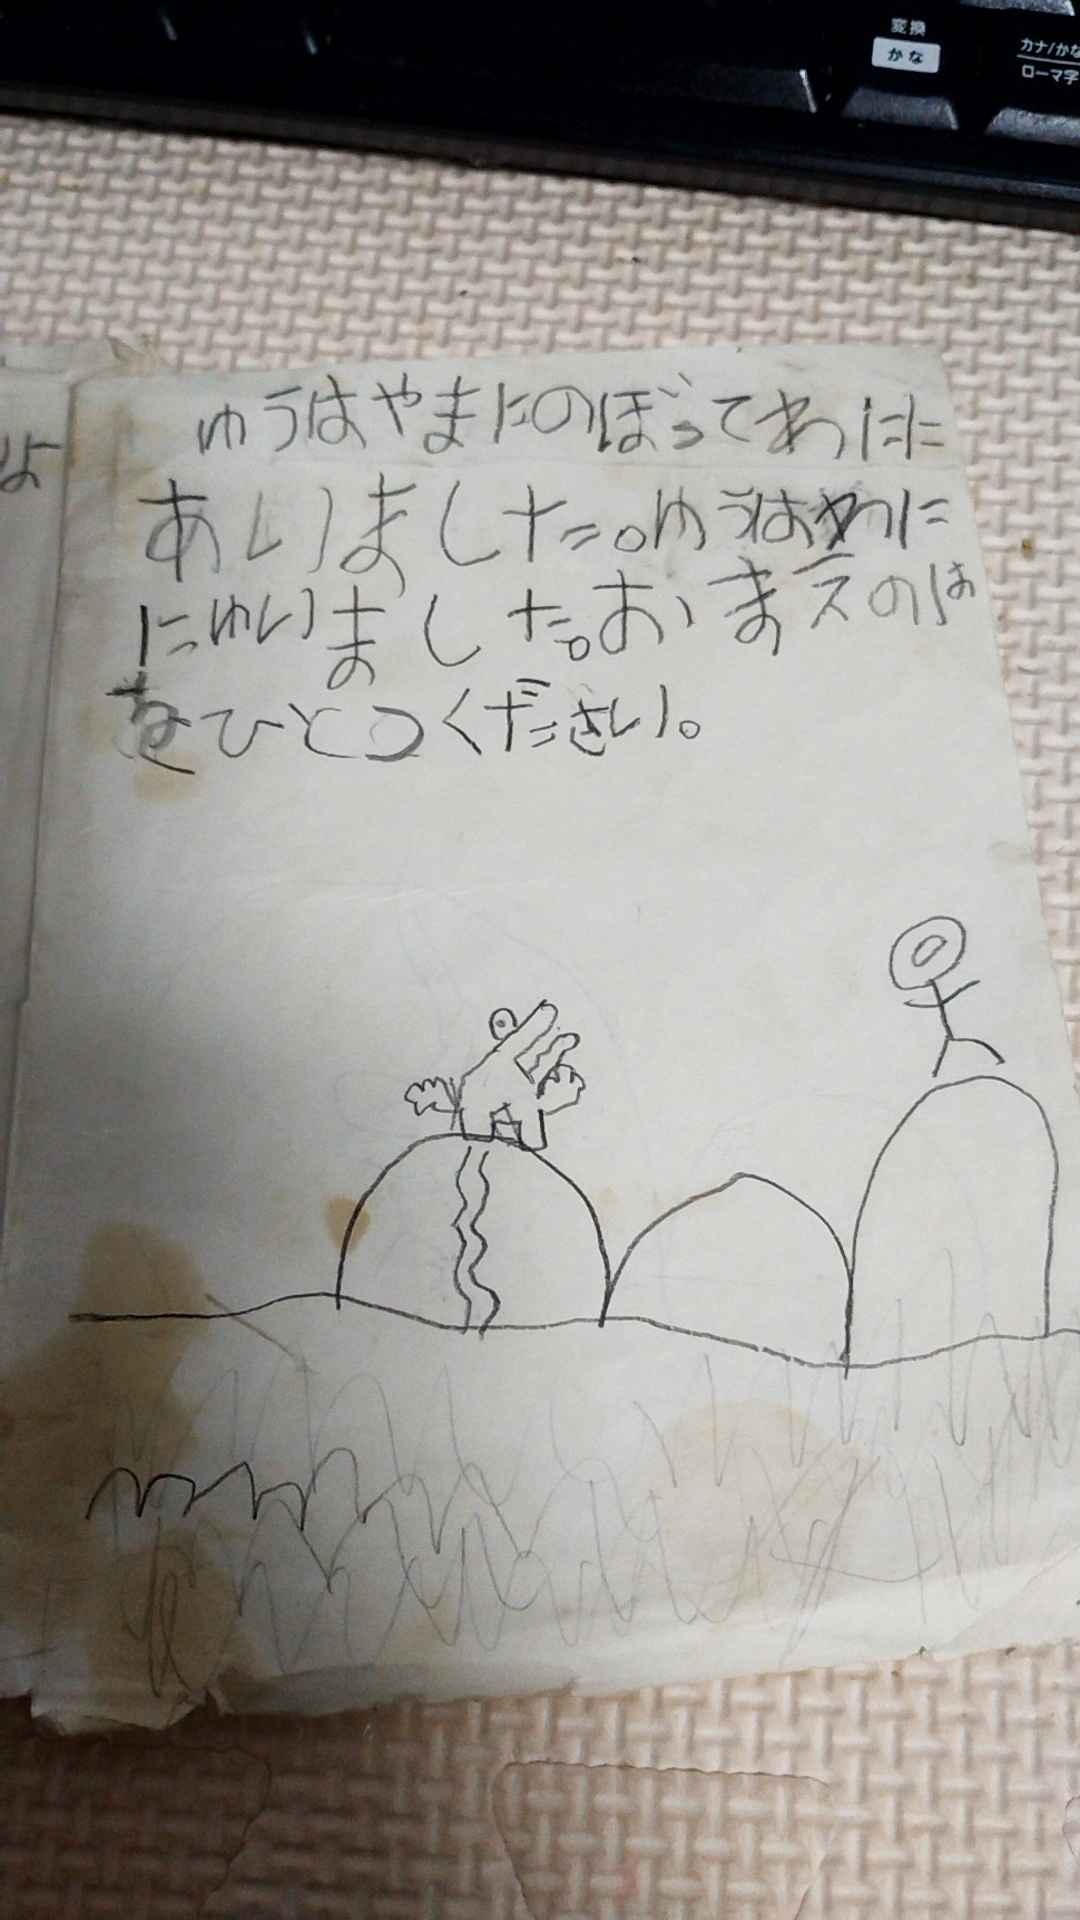 変換
かな
カナ/かな
ローマ字
よ
ゆうはやまにのぼってわにに
あいました。ゆうはわに
にゆいました。おまえのは
をひとつください。